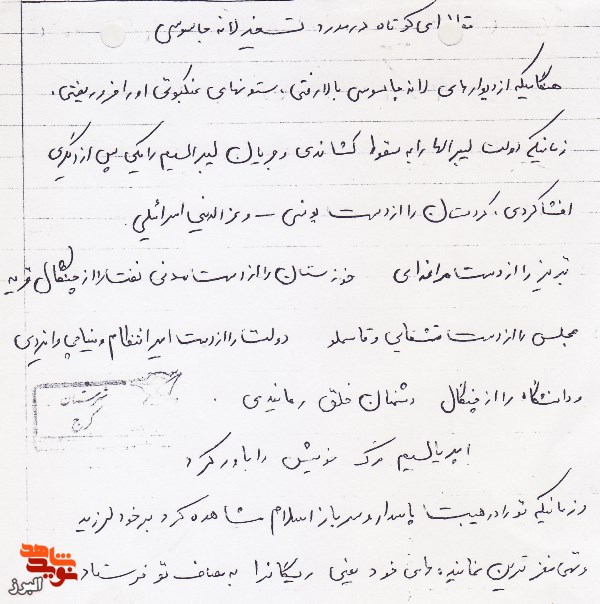 مقاله‌ای کوتاه در مورد تسخیر لانه جاسوسی
هنگامیکه از دیوارهای لانه جاسوسی بالا رفتی، ستونهای عنکبوتی او را فرو ریختی.
زمانیکه دولت لیبرالها را به سقوط کشاندی و جریان لیبرالیسم را یکی پس از دیگری
افشا کردی، کردستان را از دست یونسی و عزالدینی اسرائیلی
تبریز را از دست مراغه‌ای خوزستان را از دست مدنی نفت را از چنگال نزیه
مجلس را از دست قشقایی و قاسملو دولت را از دست امیر انتظام و میناچی و ایزدی
و دانشگاه را از چنگال دشمنان خلق رهانیدی.
امپریالیسم مرگ خویش را باور کرد
و زمانیکه تو را در هیبت پاسدار و سرباز اسلام مشاهده کرد بر خود لرزید
وقتی ترین نماینده‌های خود یعنی ریگان را به مصاف تو فرستاد
کرج
نوید شاهد
البرز